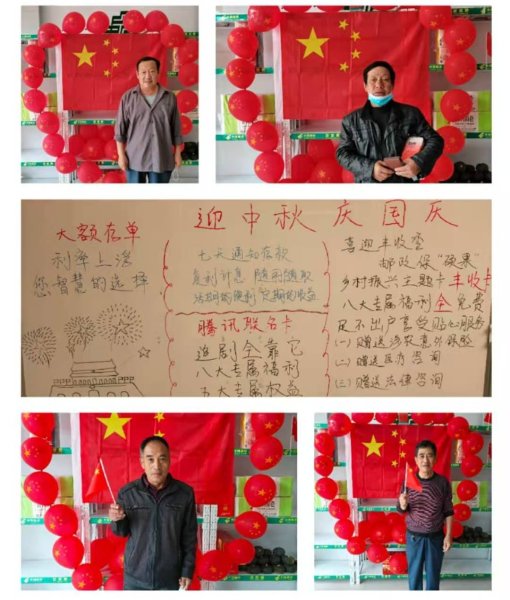 迎中秋 庆国庆
大额存单
利率上浮
您智慧的选择
七天通知存款
复利计息 随时随取
活期的便利 定期的收益
腾讯联名卡
追剧全靠它
八大专属福利
五大专属权益
喜迎丰收季
邮政保“硕果”
乡村振兴主题卡 丰收卡
八大专属福利全免费
足不出户享受贴心服务
(一) 赠送涉农意外保险
(二) 赠送医疗咨询
(三) 赠送法律咨询